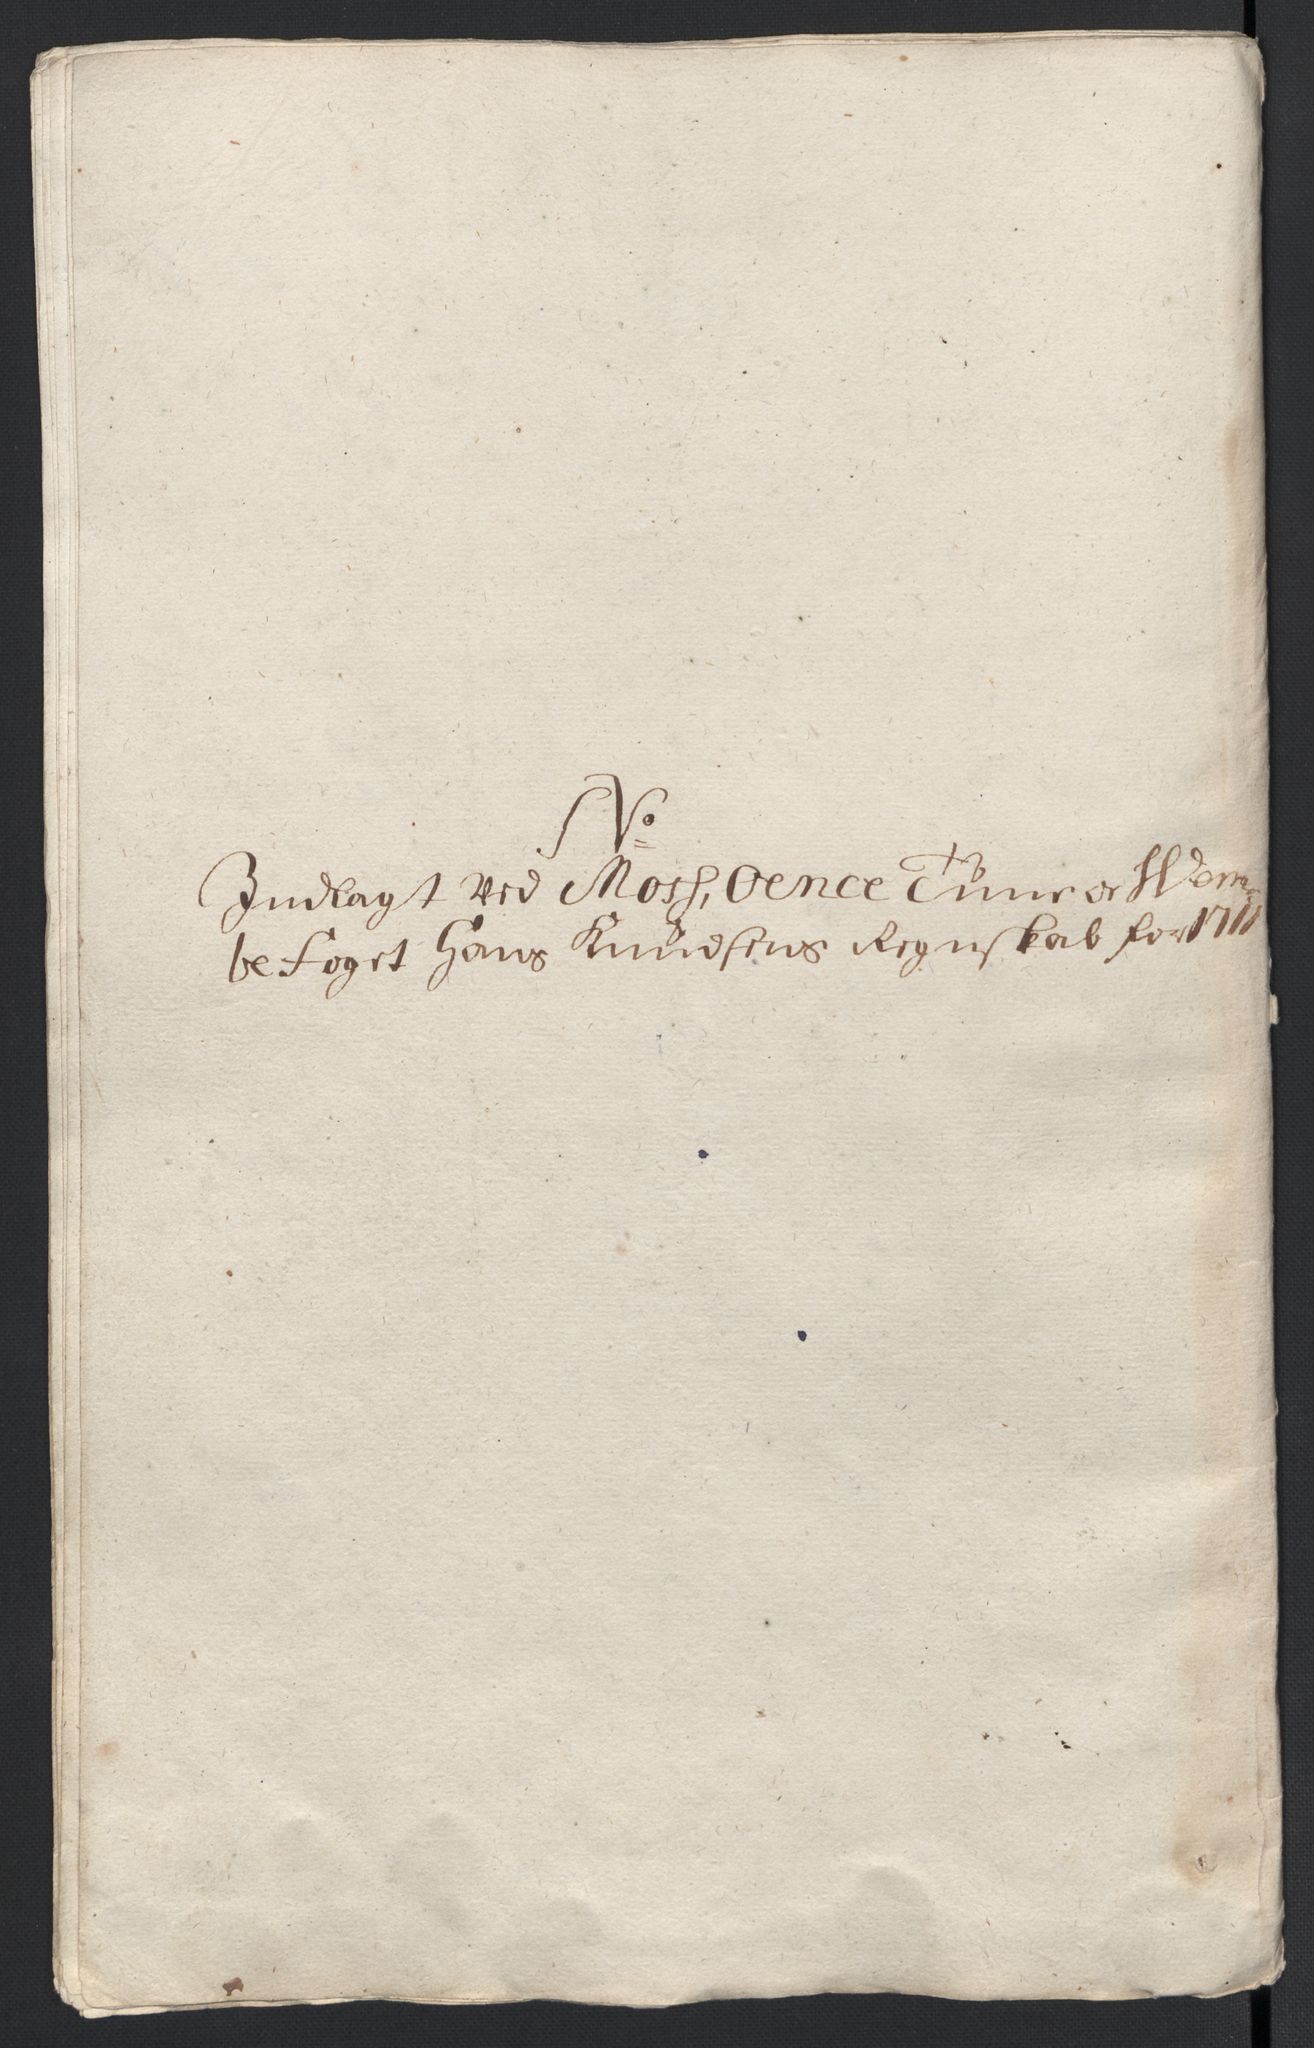 No
Indlagt ved Mosß, Oence Tune oc Wem=
be Foget Hans Knudsens Regnskab for 1711